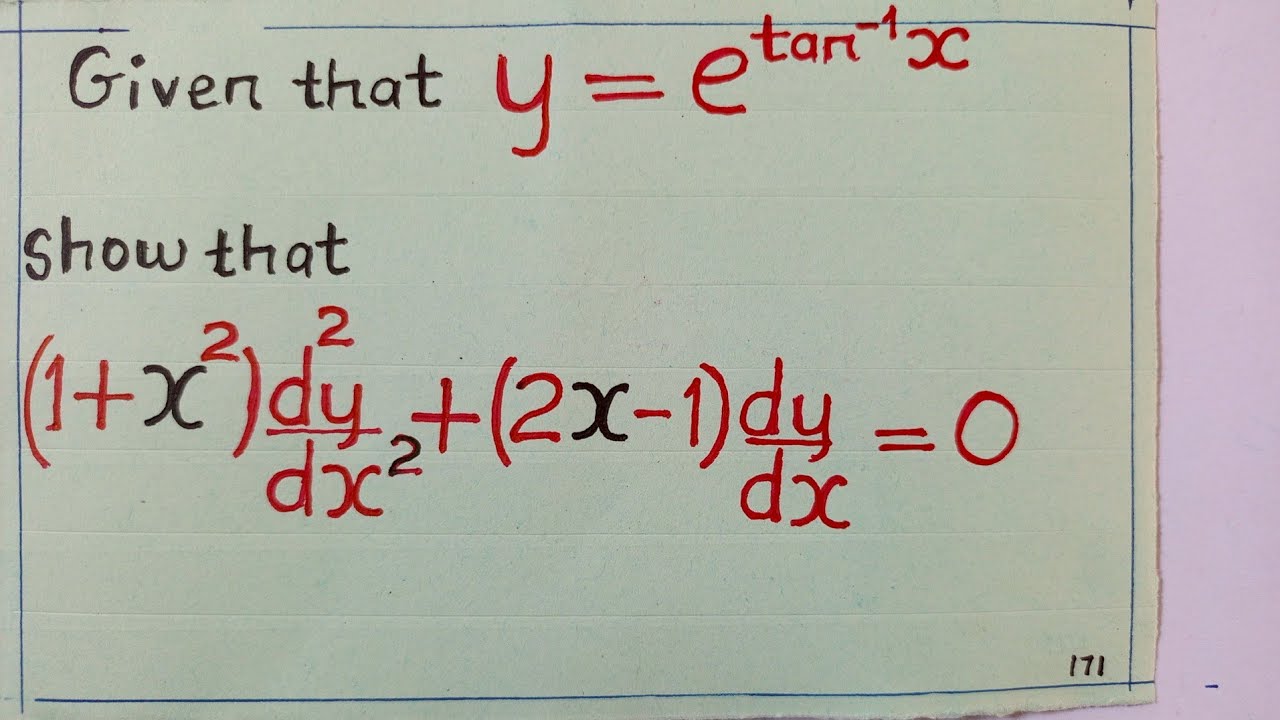 Given that y = e^tan⁻¹x
show that
(1+x²)d²y/dx² + (2x-1)dy/dx = 0
171